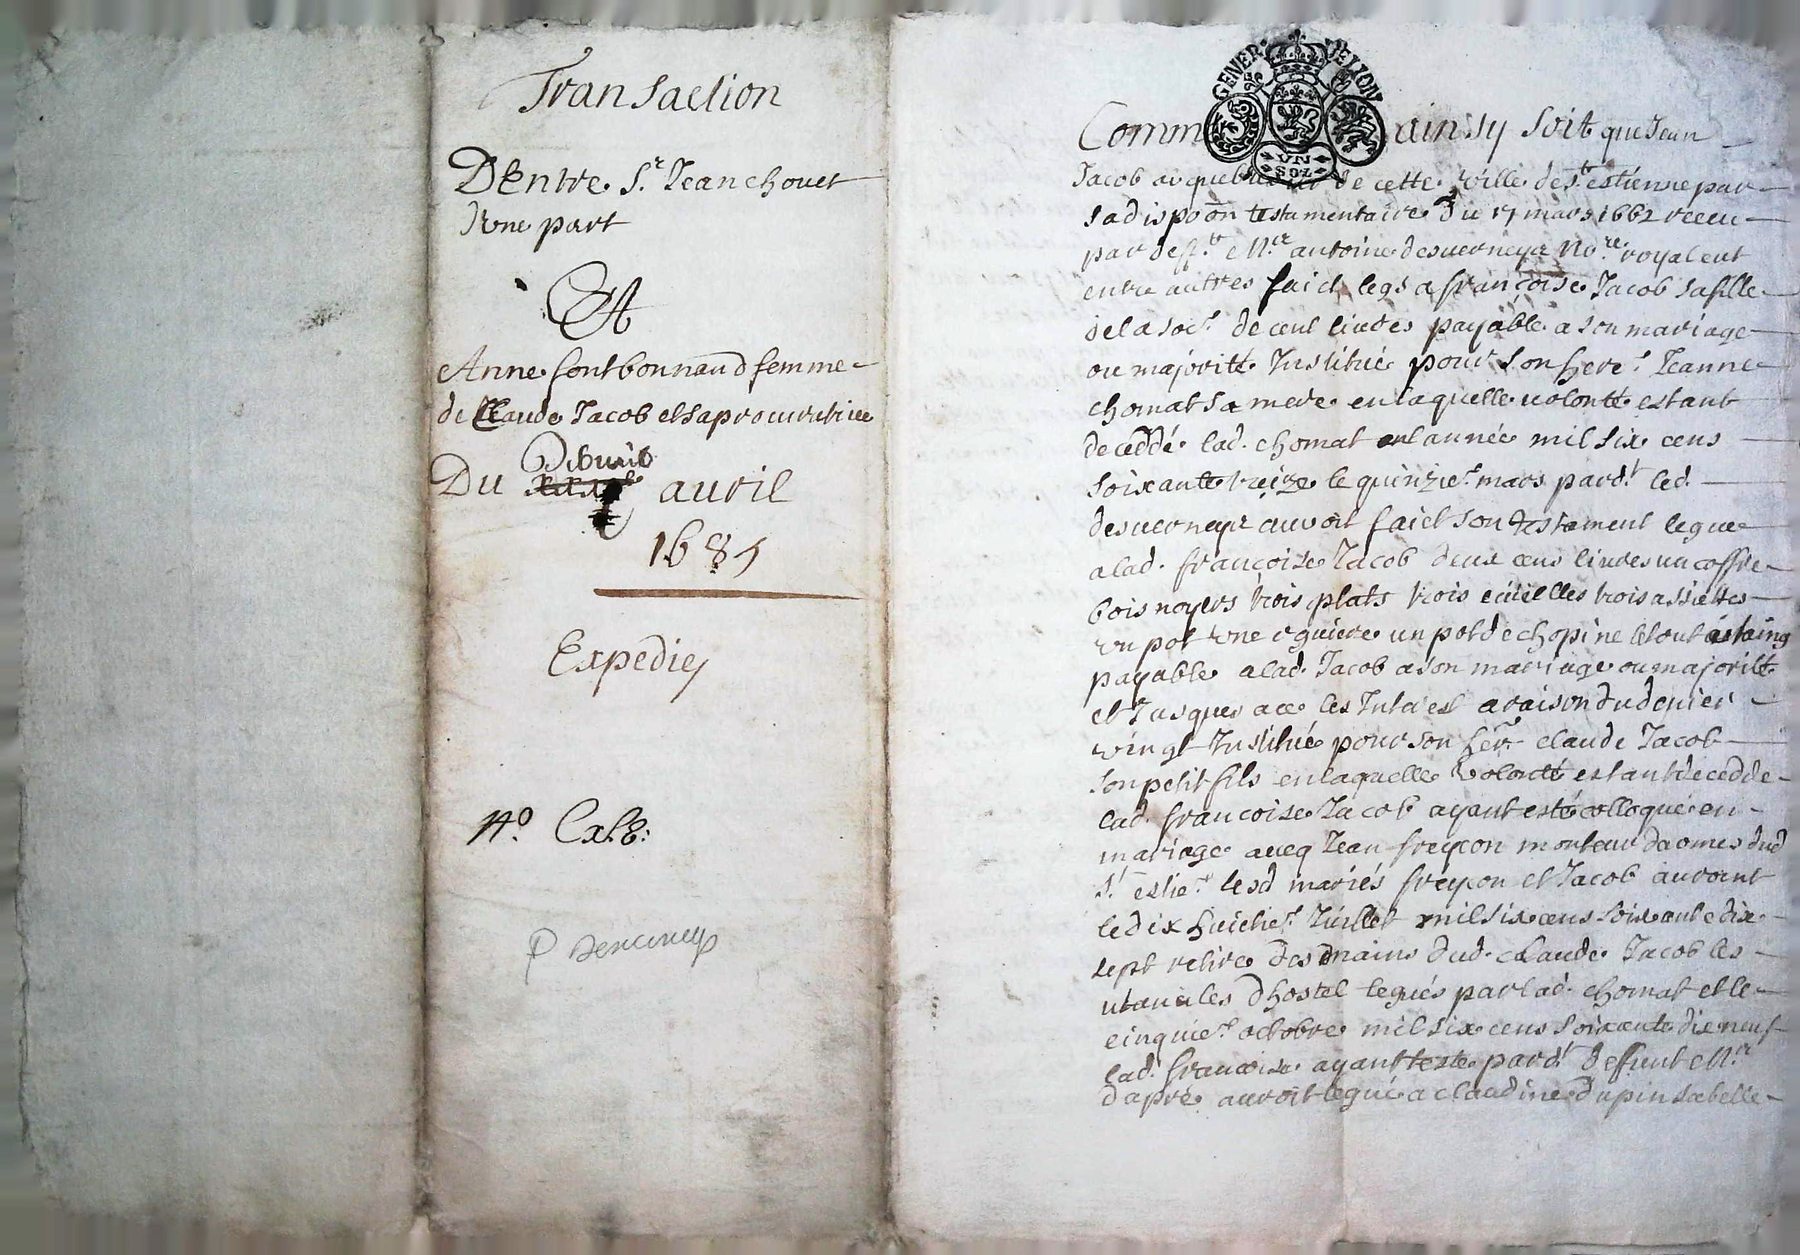 Transaction
Dentre Sr. Jean chouet
d'vne part
Et
Anne fontbonnaud femme
de Claude Jacob et sa procuratrice
Du avril
1685
Expediez
No. Exp.
GENER DE LION
VN
SOL
Comm ainsy soit que Jean
Jacob arquebusier de cette ville de st. estienne par
sa dispoon testamentaire du 17 mars 1662 receu
par deft. Mre. antoine desuerneys Nore. royal eut
entre autres faict legs a françoise Jacob sa fille
de la so.e de cent liures payable a son mariage
ou majoritte Institué pour son here. Jeanne
chomat sa mere en laquelle volontté estant
deceddé. lad. chomat en l'année mil six cens
soixante treize le quinzie. mars pard.t led.
desuerneys auroit faict son testament legue
a lad. françoise Jacob deux cens liures un coffre
bois noyers trois plats trois ecüelles trois assiettes
un pot vne eguiere un pot de chopine le tout estaing
payable a lad. Jacob a son mariage ou majoritté
et Jusques a ce les Intérest a raison du denier
vingt Institué pour son hér. claude Jacob
son petit fils en laquelle volontté estant deceddé
lad. francoise Jacob ayant esté colloqué en
mariage aueq Jean freycon monteur darmes dud
St. estie. lesd mariés freycon et Jacob auroint
le dix huictie. Juillet mil six cens soixante dix
sept retiré des mains dud. claude Jacob les
utancilles d'hostel legués par lad. chomat et le
cinquie. octobre mil six cens soixante dix neuf
lad. francoise ayant testé pard.t deffunt Mre.
dapré auroit legué a claudine dupin sabelle